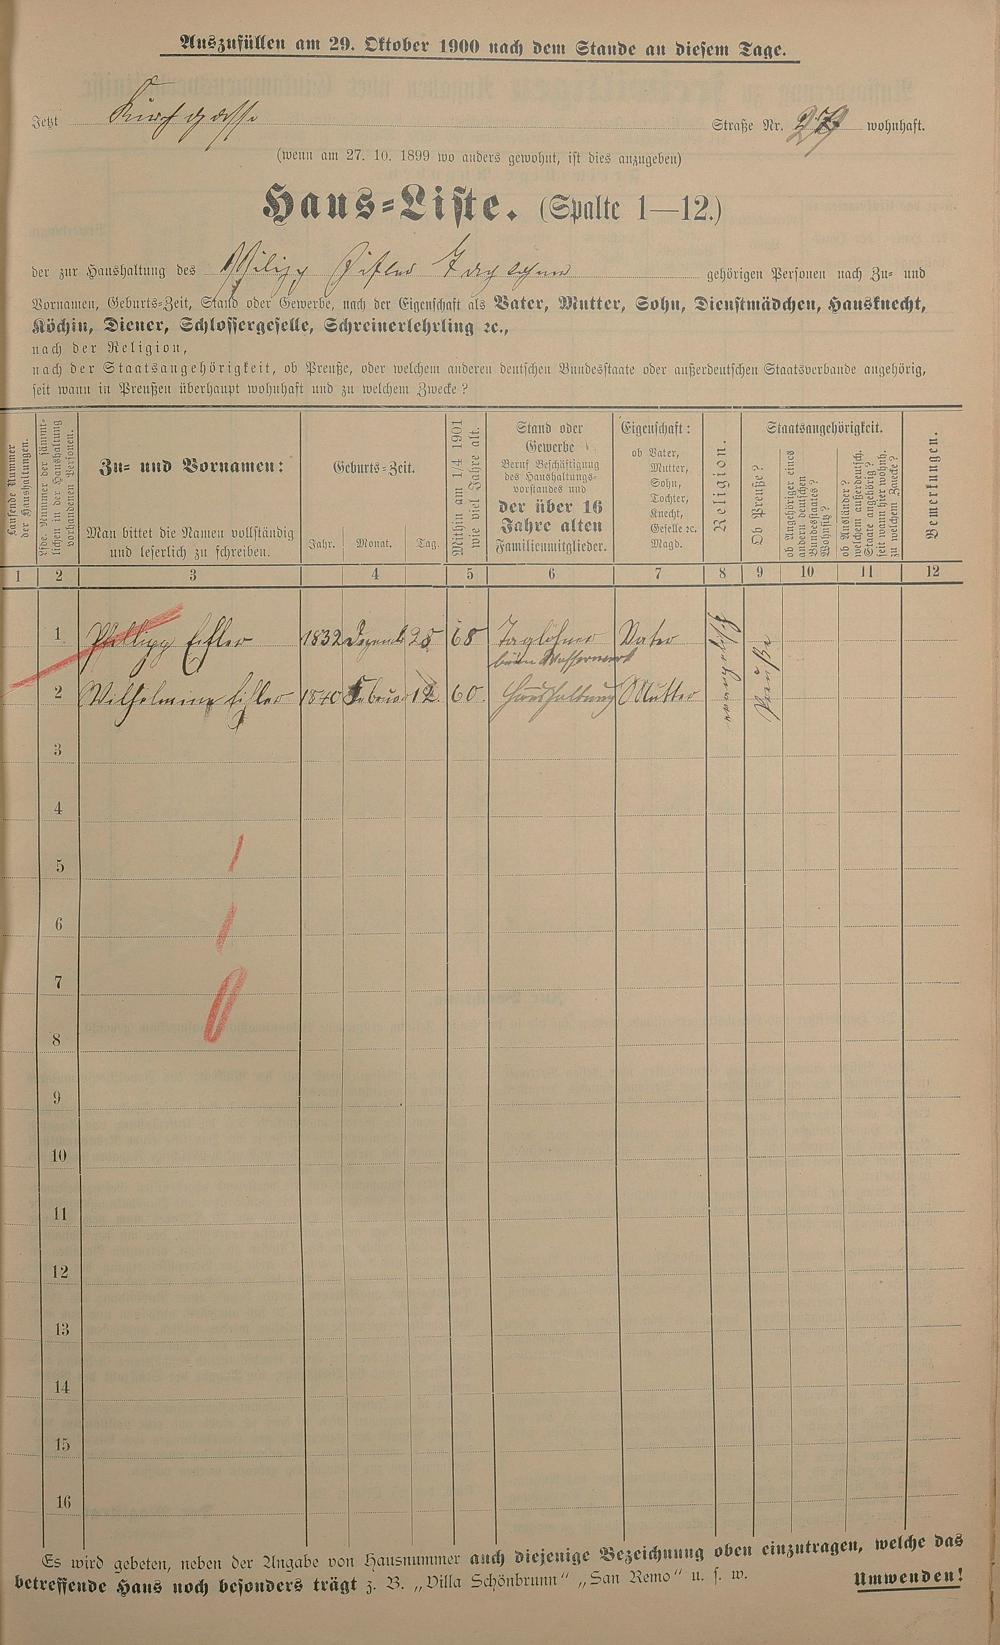 Auszufüllen am 29. Oktober 1900 nach dem Stande an diesem Tage.
Jetzt Kirchgasse Straße Nr. wohnhaft.
(wenn am 27. 10. 1899 wo anders gewohnt, ist dies anzugeben)
Haus-Liste. (Spalte 1—12.)
der zur Haushaltung des Philipp Eifler Taglöhner gehörigen Personen nach Zu- und
Vornamen, Geburts-Zeit, Stand oder Gewerbe, nach der Eigenschaft als Vater, Mutter, Sohn, Dienstmädchen, Hausknecht,
Köchin, Diener, Schlossergeselle, Schreinerlehrling ꝛc.,
nach der Religion,
nach der Staatsangehörigkeit, ob Preuße, oder welchem anderen deutschen Bundesstaate oder außerdeutschen Staatsverbande angehörig,
seit wann in Preußen überhaupt wohnhaft und zu welchem Zwecke?
Laufende Nummer
der Haushaltungen.
Lfde. Nummer der sämmt-
lichen in der Haushaltung
vorhandenen Personen.
Zu- und Vornamen:
Man bittet die Namen vollständig
und leserlich zu schreiben.
Geburts-Zeit.
Jahr. Monat. Tag.
Mithin am 1/4 1901
wie viel Jahre alt.
Stand oder
Gewerbe
Beruf Beschäftigung
des Haushaltungs-
vorstandes und
der über 16
Jahre alten
Familienmitglieder.
Eigenschaft:
ob Vater,
Mutter,
Sohn,
Tochter,
Knecht,
Geselle ꝛc.
Magd.
Religion.
Staatsangehörigkeit.
Ob Preuße?
ob Angehöriger eines
andern deutschen
Bundesstaates?
Wohnsitz?
ob Ausländer?
welchem außerdeutsch.
Staate angehörig?
seit wann hier wohnh.
zu welchem Zwecke?
Bemerkungen.
1 2 3 4 5 6 7 8 9 10 11 12
1 Phillipp Eifler 1832 Dezemb 25 68 Taglöhner Vater evangelisch Preuße
beim Wasserwerk
2 Wilhelmine Eifler 1840 Februar 12. 60. Haushaltung Mutter
3
4
5
6
7
8
9
10
11
12
13
14
15
16
Es wird gebeten, neben der Angabe von Hausnummer auch diejenige Bezeichnung oben einzutragen, welche das
betreffende Haus noch besonders trägt z. B. „Villa Schönbrunn“ „San Remo“ u. s. w. Umwenden!